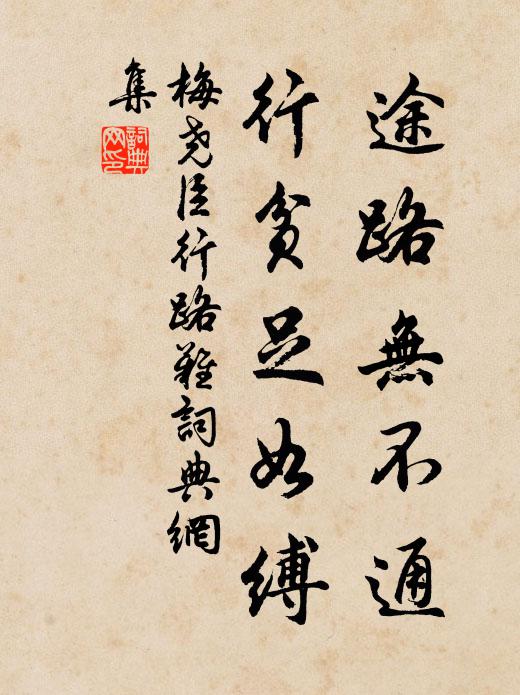 途路無不通
行貧足如縛
梅尧臣行路難詞典網
集
詞典
网印